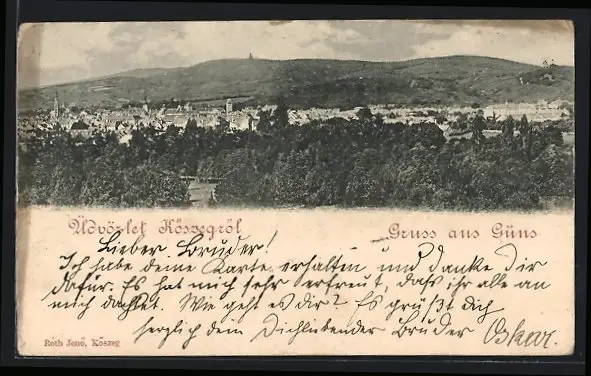 Üdvözlet Kőszegről
Gruss aus Güns
Lieber Bruder!
Ich habe deine Karte erhalten und danke Dir
dafür. Es hat mich sehr erfreut, daß ihr alle an
mich dachtet. Wie geht es dir? Es grüßt dich
herzlich dein Dichliebender Bruder Oskar.
Roth Jenő, Kőszeg